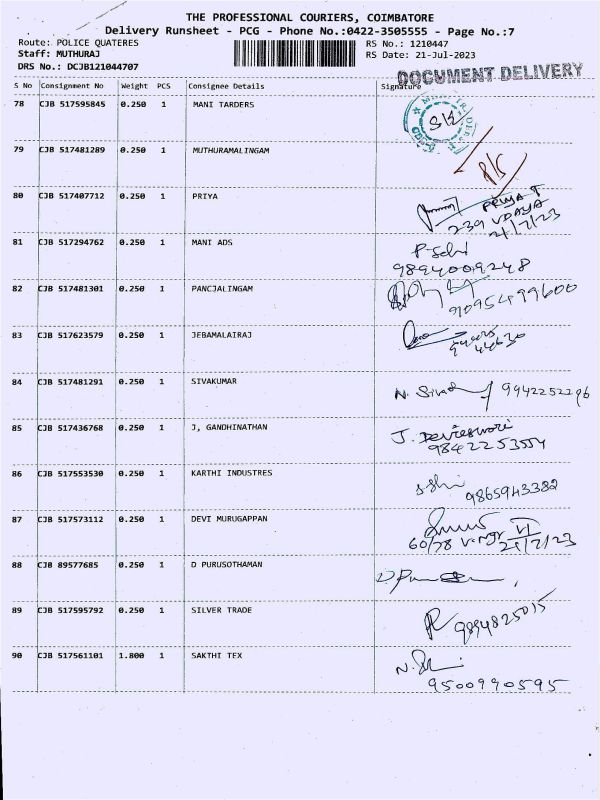 THE PROFESSIONAL COURIERS, COIMBATORE
Delivery Runsheet - PCG - Phone No.:0422-3505555 - Page No.:7
Route: POLICE QUATERES
RS No.: 1210447
Staff: MUTHURAJ
RS Date: 21-Jul-2023
DRS No.: DCJB121044707
DOCUMENT DELIVERY
S No Consignment No Weight PCS Consignee Details Signature
78 CJB 517595845 0.250 1 MANI TARDERS
SK
79 CJB 517481289 0.250 1 MUTHURAMALINGAM
80 CJB 517407712 0.250 1 PRIYA
PRIYA T
239 UDAYA
21/7/23
81 CJB 517294762 0.250 1 MANI ADS
9894009248
82 CJB 517481301 0.250 1 PANCJALINGAM
9109549 9600
83 CJB 517623579 0.250 1 JEBAMALAIRAJ
44630
84 CJB 517481291 0.250 1 SIVAKUMAR
N. Siva 9942252296
85 CJB 517436768 0.250 1 J, GANDHINATHAN
J. Devieswari
9842253554
86 CJB 517553530 0.250 1 KARTHI INDUSTRES
9865943382
87 CJB 517573112 0.250 1 DEVI MURUGAPPAN
60/78 V. Ngr VI
21/7/23
88 CJB 89577685 0.250 1 D PURUSOTHAMAN
89 CJB 517595792 0.250 1 SILVER TRADE
9894825015
90 CJB 517561101 1.800 1 SAKTHI TEX
9500990595